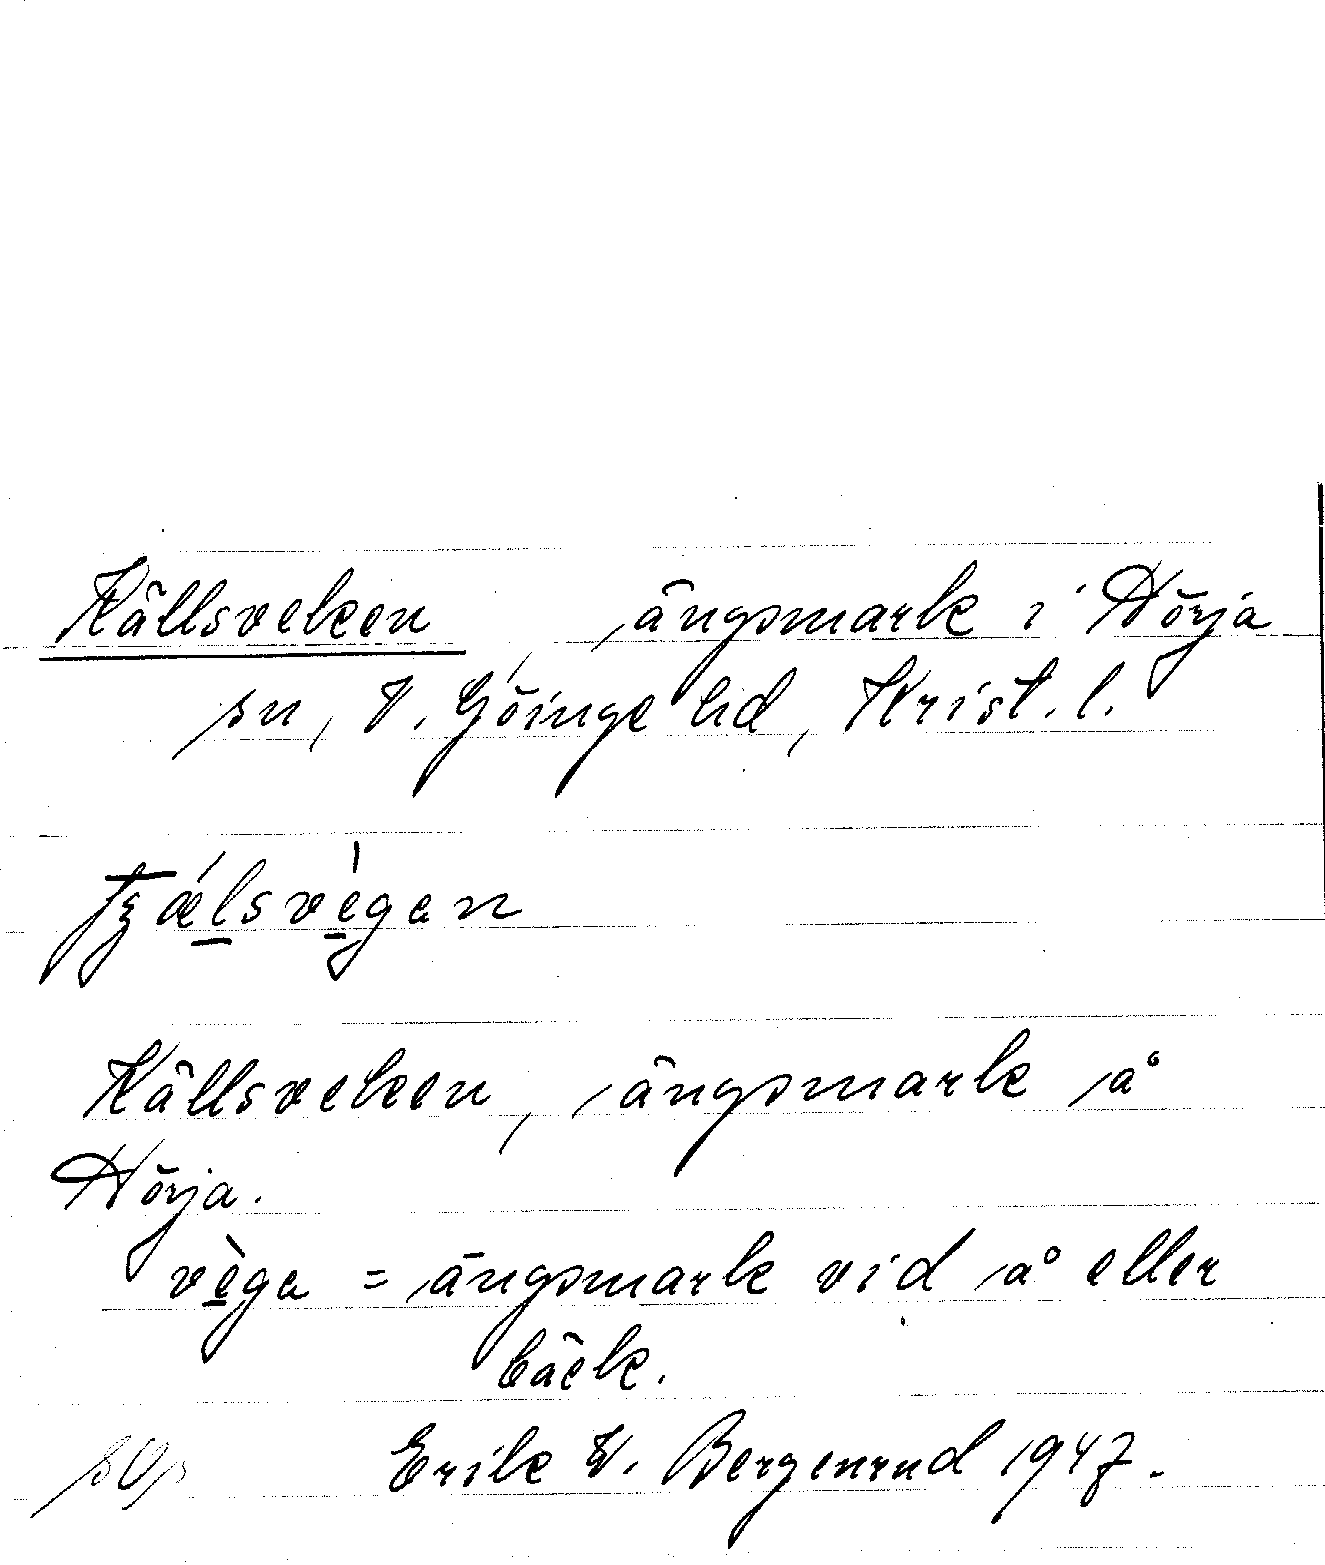 Källsveken, ängsmark i Hörja
sn, V. Göinge hd, Krist. l.
Källsveken, ängsmark å
Hörja.
vèga = ängsmark vid å eller
bäck.
Erik W. Bergenrud 1947.